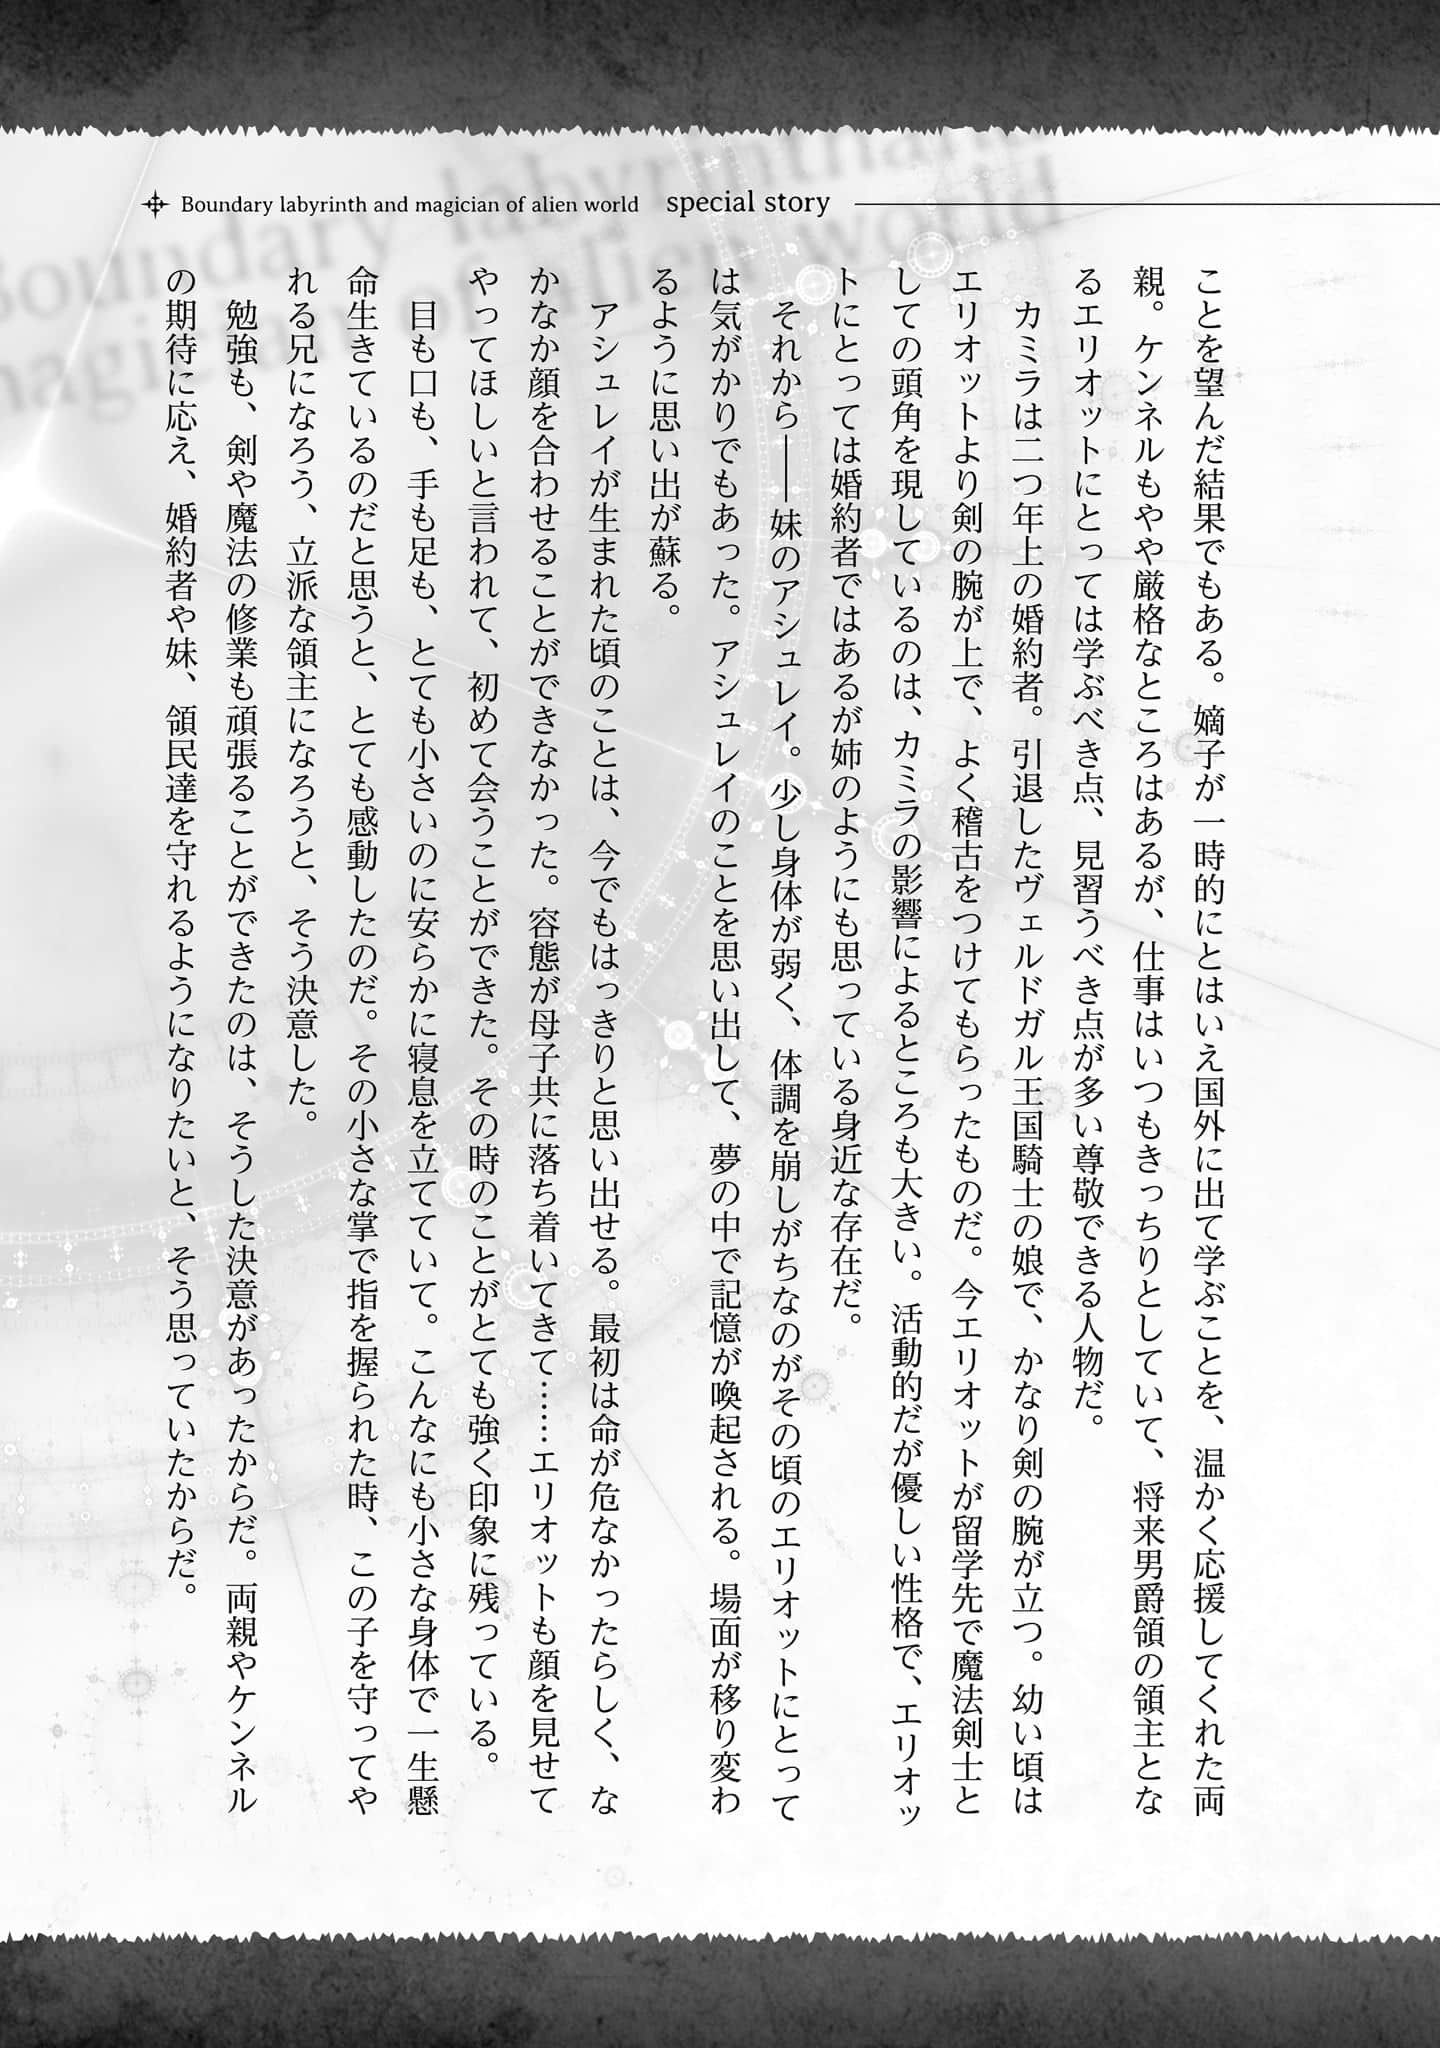 Boundary labyrinth and magician of alien world special story
ことを望んだ結果でもある。嫡子が一時的にとはいえ国外に出て学ぶことを、温かく応援してくれた両
親。ケンネルもやや厳格なところはあるが、仕事はいつもきっちりとしていて、将来男爵領の領主とな
るエリオットにとっては学ぶべき点、見習うべき点が多い尊敬できる人物だ。
カミラは二つ年上の婚約者。引退したヴェルドガル王国騎士の娘で、かなり剣の腕が立つ。幼い頃は
エリオットより剣の腕が上で、よく稽古をつけてもらったものだ。今エリオットが留学先で魔法剣士と
しての頭角を現しているのは、カミラの影響によるところも大きい。活動的だが優しい性格で、エリオッ
トにとっては婚約者ではあるが姉のようにも思っている身近な存在だ。
それから――妹のアシュレイ。少し身体が弱く、体調を崩しがちなのがその頃のエリオットにとって
は気がかりでもあった。アシュレイのことを思い出して、夢の中で記憶が喚起される。場面が移り変わ
るように思い出が蘇る。
アシュレイが生まれた頃のことは、今でもはっきりと思い出せる。最初は命が危なかったらしく、な
かなか顔を合わせることができなかった。容態が母子共に落ち着いてきて……エリオットも顔を見せて
やってほしいと言われて、初めて会うことができた。その時のことがとても強く印象に残っている。
目も口も、手も足も、とても小さいのに安らかに寝息を立てていて。こんなにも小さな身体で一生懸
命生きているのだと思うと、とても感動したのだ。その小さな掌で指を握られた時、この子を守ってや
れる兄になろう、立派な領主になろうと、そう決意した。
勉強も、剣や魔法の修業も頑張ることができたのは、そうした決意があったからだ。両親やケンネル
の期待に応え、婚約者や妹、領民達を守れるようになりたいと、そう思っていたからだ。
Boundary labyrinth and
magician of alien world